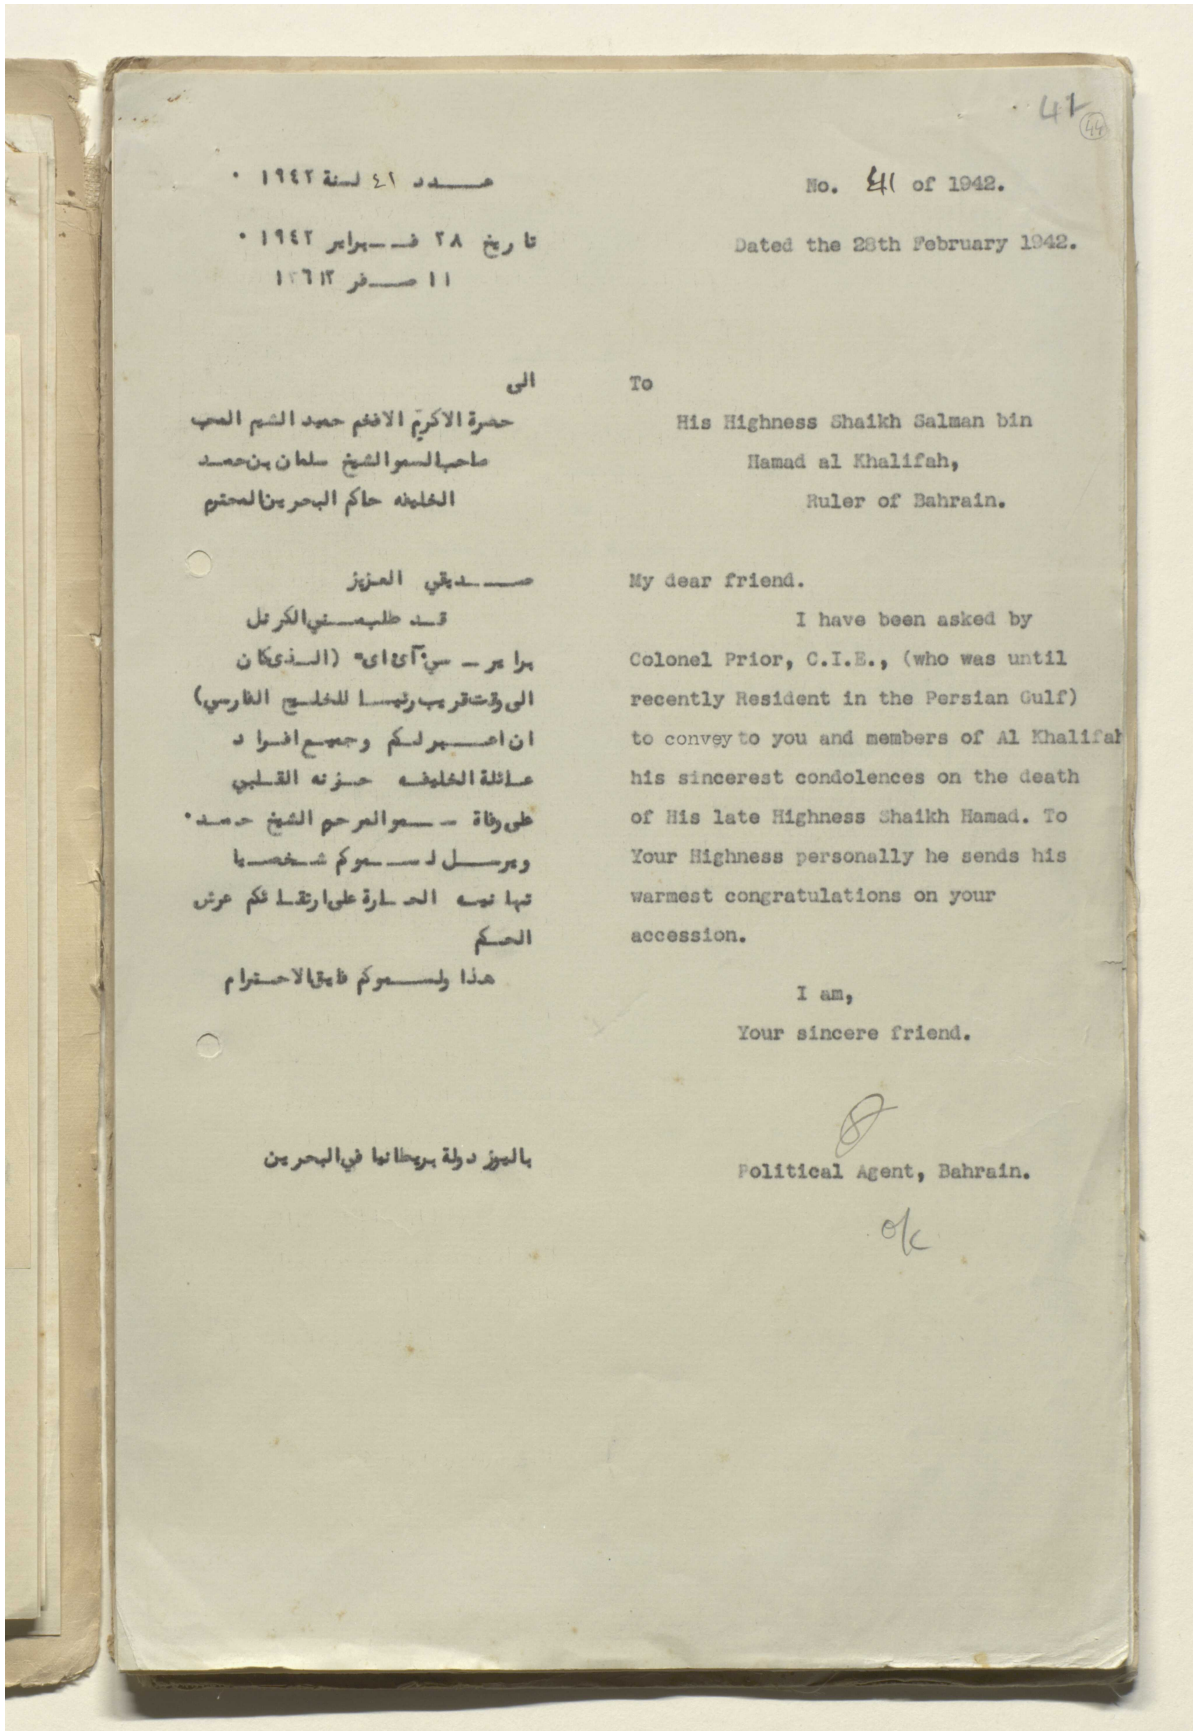 42
44
No. 41 of 1942.
Dated the 28th February 1942.
To
His Highness Shaikh Salman bin
Hamad al Khalifah,
Ruler of Bahrain.
My dear friend.
I have been asked by
Colonel Prior, C.I.E., (who was until
recently Resident in the Persian Gulf)
to convey to you and members of Al Khalifah
his sincerest condolences on the death
of His late Highness Shaikh Hamad. To
Your Highness personally he sends his
warmest congratulations on your
accession.
I am,
Your sincere friend.
Political Agent, Bahrain.
ok
عــدد ٤١ لسنة ١٩٤٢ ٠
تاريخ ٢٨ فــبراير ١٩٤٢ ٠
١١ صــفر ١٣٦١
الى
حضرة الاكرم الافخم حميد الشيم المحب
صاحب السمو الشيخ سلمان بن حمـد
الخليفه حاكم البحرين المحترم
صــديقي العزيز
قـد طلب مـني الكرنل
براير ـ سي٠ آى٠ اى٠ (الـذى كان
الى وقت قريب رئيسـا للخلـيج الفارسي)
ان اعـبر لـكم وجميـع افـراد
عـائلة الخليفـه حـزنه القـلبي
على وفاة ــسمو المرحوم الشيخ حـمد٠
ويرسـل لـسـموكم شـخصـيا
تهانيـه الحـارة على ارتقـائكم عرش
الحـكم
هذا ولسـموكم فايق الاحـترام
باليوز دولة بريطانيا في البحرين